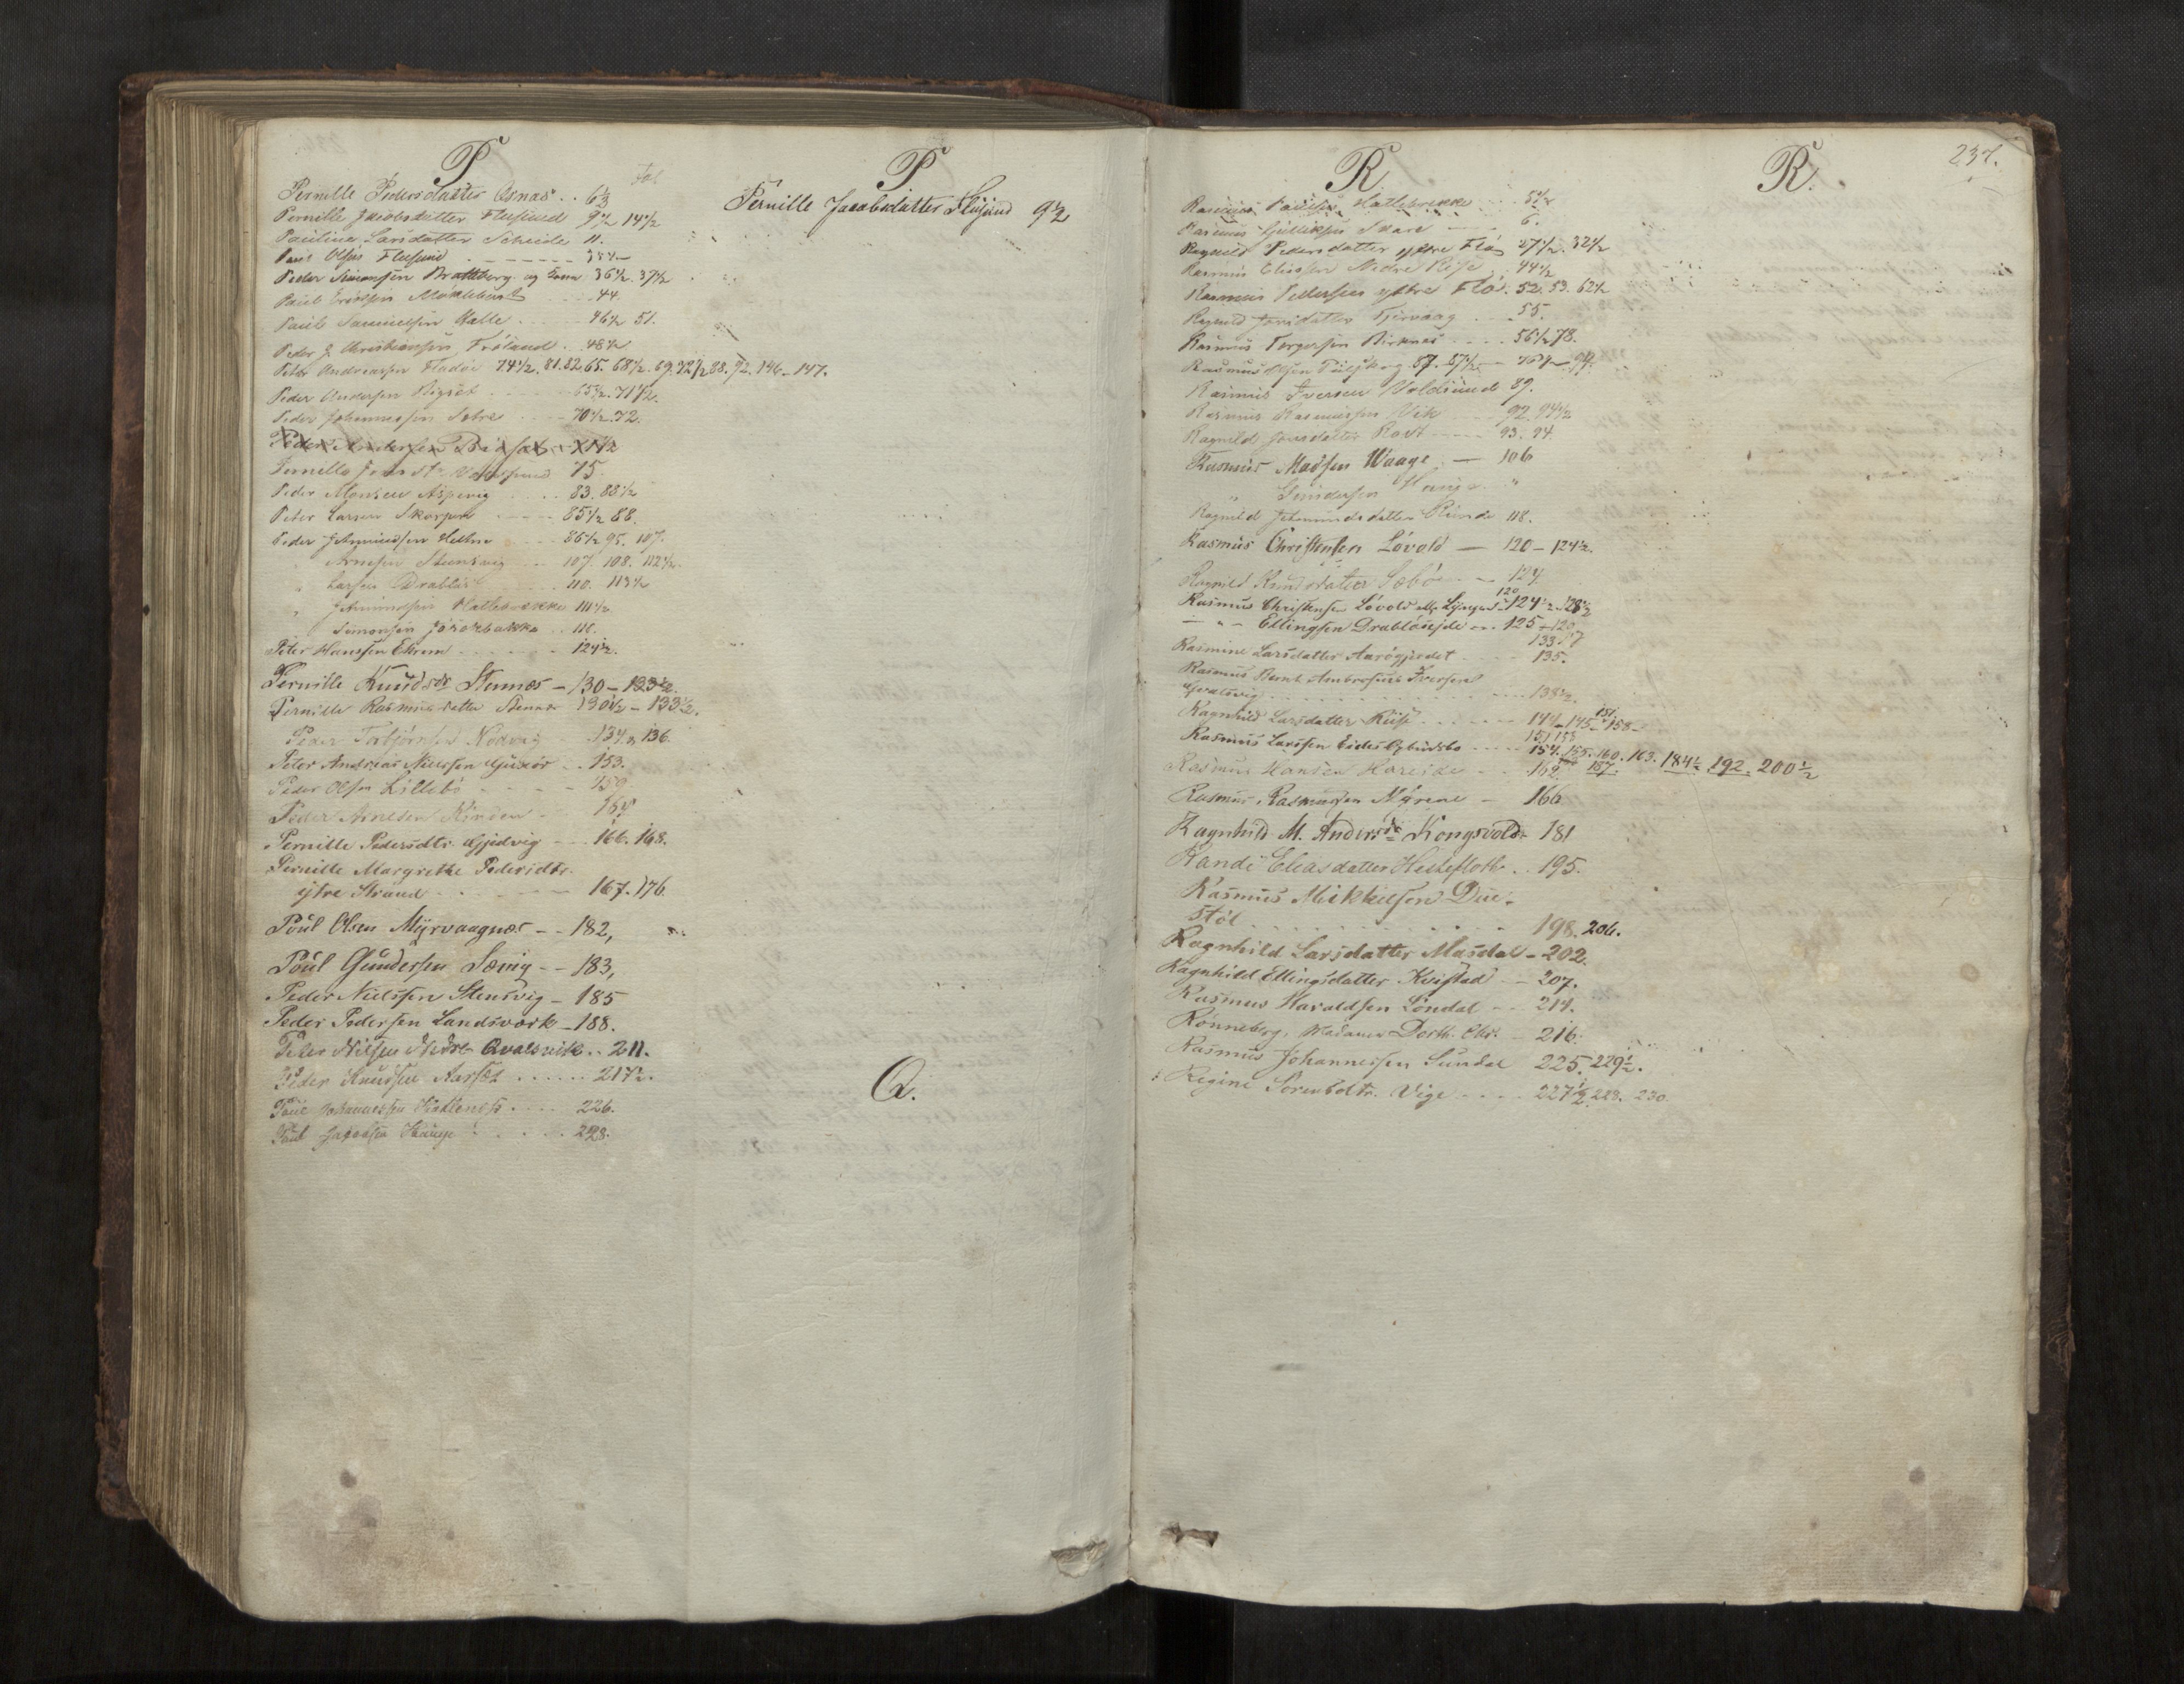 P
Fol
Pernille Pedersdatter Osnæs . . 6½
Pernille Jacobsdatter Flusund 9½ 14½
Pauline Larsdatter Scheide 11.
Paul Olsen Flusund - - - - - -
Peder Simonsen Brattberg og Kone 36½. 37½
Paul Ericksen Mäkleburst - - 44.
Paul Samuelsen Halle - - - - 46½ 51.
Peder J. Christiansen Fröland . 48½
Peter Andreasen Fladöe 74½. 81. 82 65. 68½. 69. 72½ 88. 92. 146-147.
Peder Andersen Rigsæt - - - - 65½. 71½.
Peder Johannessen Sætre - - - 70½. 72.
Peder Andersen - 71½
Pernille Jons dtr Voldsund 75.
Peder Monsen Aspevig . . . . . 83. 88½
Peter Larsen Skorpen - - - - 85½ 88.
Peder Jetmundsen Heltne - - - 86½ 95. 107.
" Arnesen Stensvig - - 107. 108. 112½.
" Larsen Drabløs - - - 110. 113½
" Jetmundsen Hatlebrække 111½.
" Simonsen . . 111.
Peter Hanssen Ekrem - - - - - 124½.
Pernille Knudsdr Stennes - 130 - 133½.
Pernille Rasmusdatter Stennes 130½ - 133½.
Peder Torbjörnsen Nödvig - 134 & 136.
Peter Andreas Nielssen Gjuxör . . 153.
Peder Olsen Lillebö - - - - - 159.
Peder Arnesen -
Pernille Pedersdtr. Gjedvig - - - 166. 168.
Pernille Margrethe Pedersdtr.
ytre Strand - - - - - 167. 176.
Poul Olsen Myrvaagnæs - - 182,
Poul Gundersen Sævig - - 183,
Peder Nielssen Stensvig - 185
Peder Pedersen Landsværk - 188.
Peter Nilsen Nedre Qvalsvik . . 211.
Peder Knudsen Aarset . . . . . . 217½.
Poul Johannessen Hatlenes . . . . 226.
Paul Jacobsen Hauge . . . . . 228.
P
Pernille Jacobsdatter Flusund 9½
Q.
R
Rasmus Paulsen Hatlebrekke - - 5½
Rasmus Gulliksen Skare - - - 6.
Ragnild Pedersdatter ytre Flø 27½. 32½
Rasmus Eliassen Nedre Rise . . 44½
Rasmus Pedersen ytre Flø. 52. 53. 62½
Ragnild Jonsdatter Tjervaag . . . 55.
Rasmus Torgersen Birknes . . . . 56½ 78.
Rasmus Olsen 87. 87½ -
Rasmus Iversen Voldsund 89.
Rasmus Rasmussen Vik - - - 92. 94½
Ragnild Jonsdatter - - - 93. 94.
Rasmus Madsen Waage - 106
" Gundersen Hauge "
Ragnild Jetmundsdatter Runde 118.
Rasmus Christensen Lövold - 120 - 124½.
Ragnild Knudsdatter Sæbö - - 124.
120
Rasmus Christensen Lövold 124½. 128½
- " - Ellingsen Drabløsejde - - 125 - 120
133. 17
Rasmine Larsdatter Aarögjerdet - - - 135.
Rasmus Bernt Ambrosius Iversen
Qvalsvig - - - - - - - 138½.
151.
Ragnhild Larsdatter Riise - - - - 144 - 145 - 158 -
151 158
Rasmus Larssen Eides - - - - - 154. 155. 160. 163. 184½. 192. 200½
Rasmus Hansen Hareide - - 162. 187.
Rasmus Rasmussen Myrene - 166
Ragnhild M. Andersdr Kongsvold - 181
Randi Eliasdatter Hesteflott . . 195.
Rasmus Mikkelsen Due-
stöl . . . . . . . . . . 198. 206.
Ragnhild Larsdatter Masdal - 202.
Ragnhild Ellingsdatter Kvistad - 207.
Rasmus Haraldsen Löndal - - 214.
Rönneberg, Madame Dorth. Chr. - 216.
Rasmus Johannessen Sundal 225. 229½.
Regine Sorensdtr. Vige - - - - 227½. 228. 230.
R.
237.